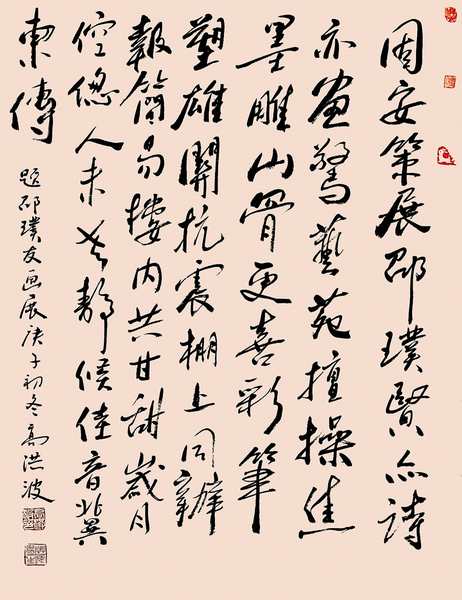 固安策展邵璞賢亦詩
亦画驚藝苑擅操焦
墨雕山骨更喜彩筆
塑雄關抗震棚上同辦
報簡易樓内共甘甜歲月
倥偬人未老靜候佳音冀
東傳
题邵璞友画展庚子初冬高洪波